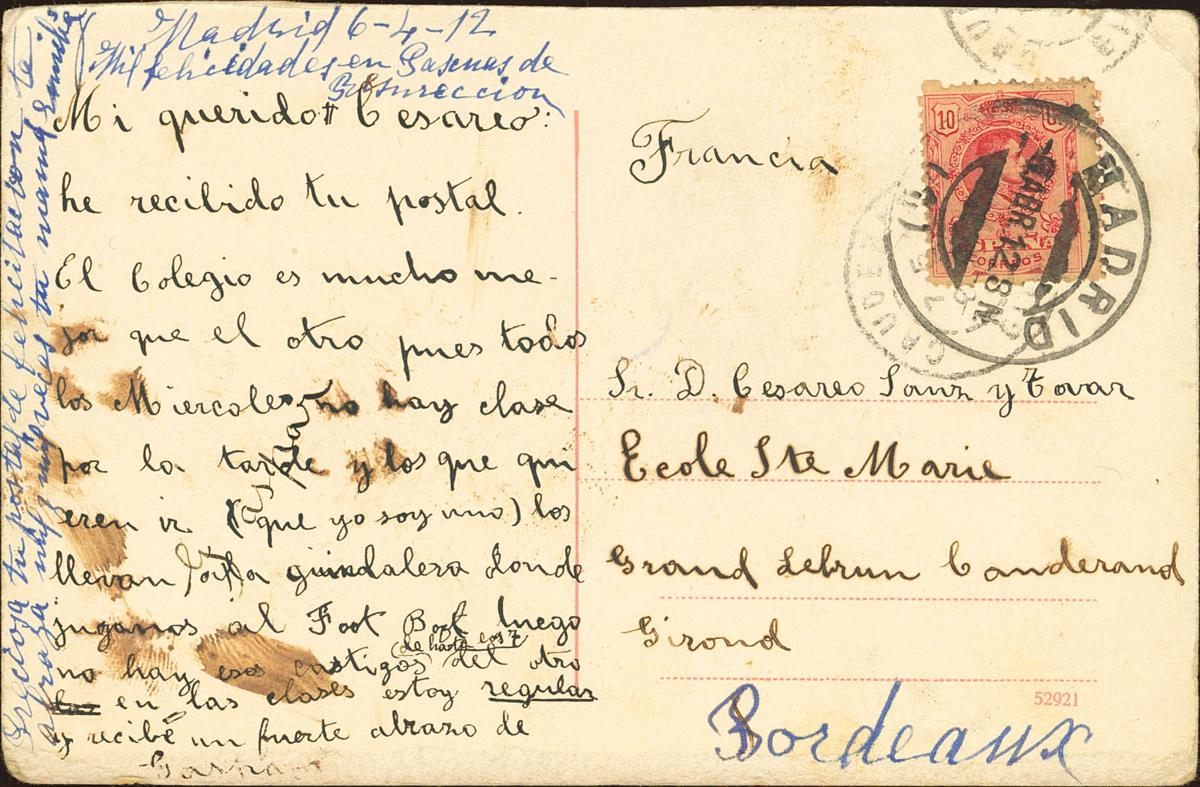 Madrid 6-4-12
Mil felicidades en Pascuas de
Resureccion
Mi querido Cesareo:
he recibido tu postal.
El Colegio es mucho me-
jor que el otro pues todos
los Miercoles no hay clase
por la tarde y los que qui
eren ir (que yo soy uno) los
llevan a la guindalera donde
jugamos al Foot Boot luego
(de hasta las 7
no hay esos castigos del otro
en las clases estoy regular
y recibe un fuerte abrazo de
Preciosa tu postal de felicitacion te
abraza mil y mil veces tu mamá
Francia
10
ESPAÑA
CORREOS
MADRID
ABR 12 8M
CAUDERAN
Sr. D. Cesareo Sanz y Tovar
Ecole Ste Marie
Grand Lebrun Canderand
Girond
Bordeaux
52921